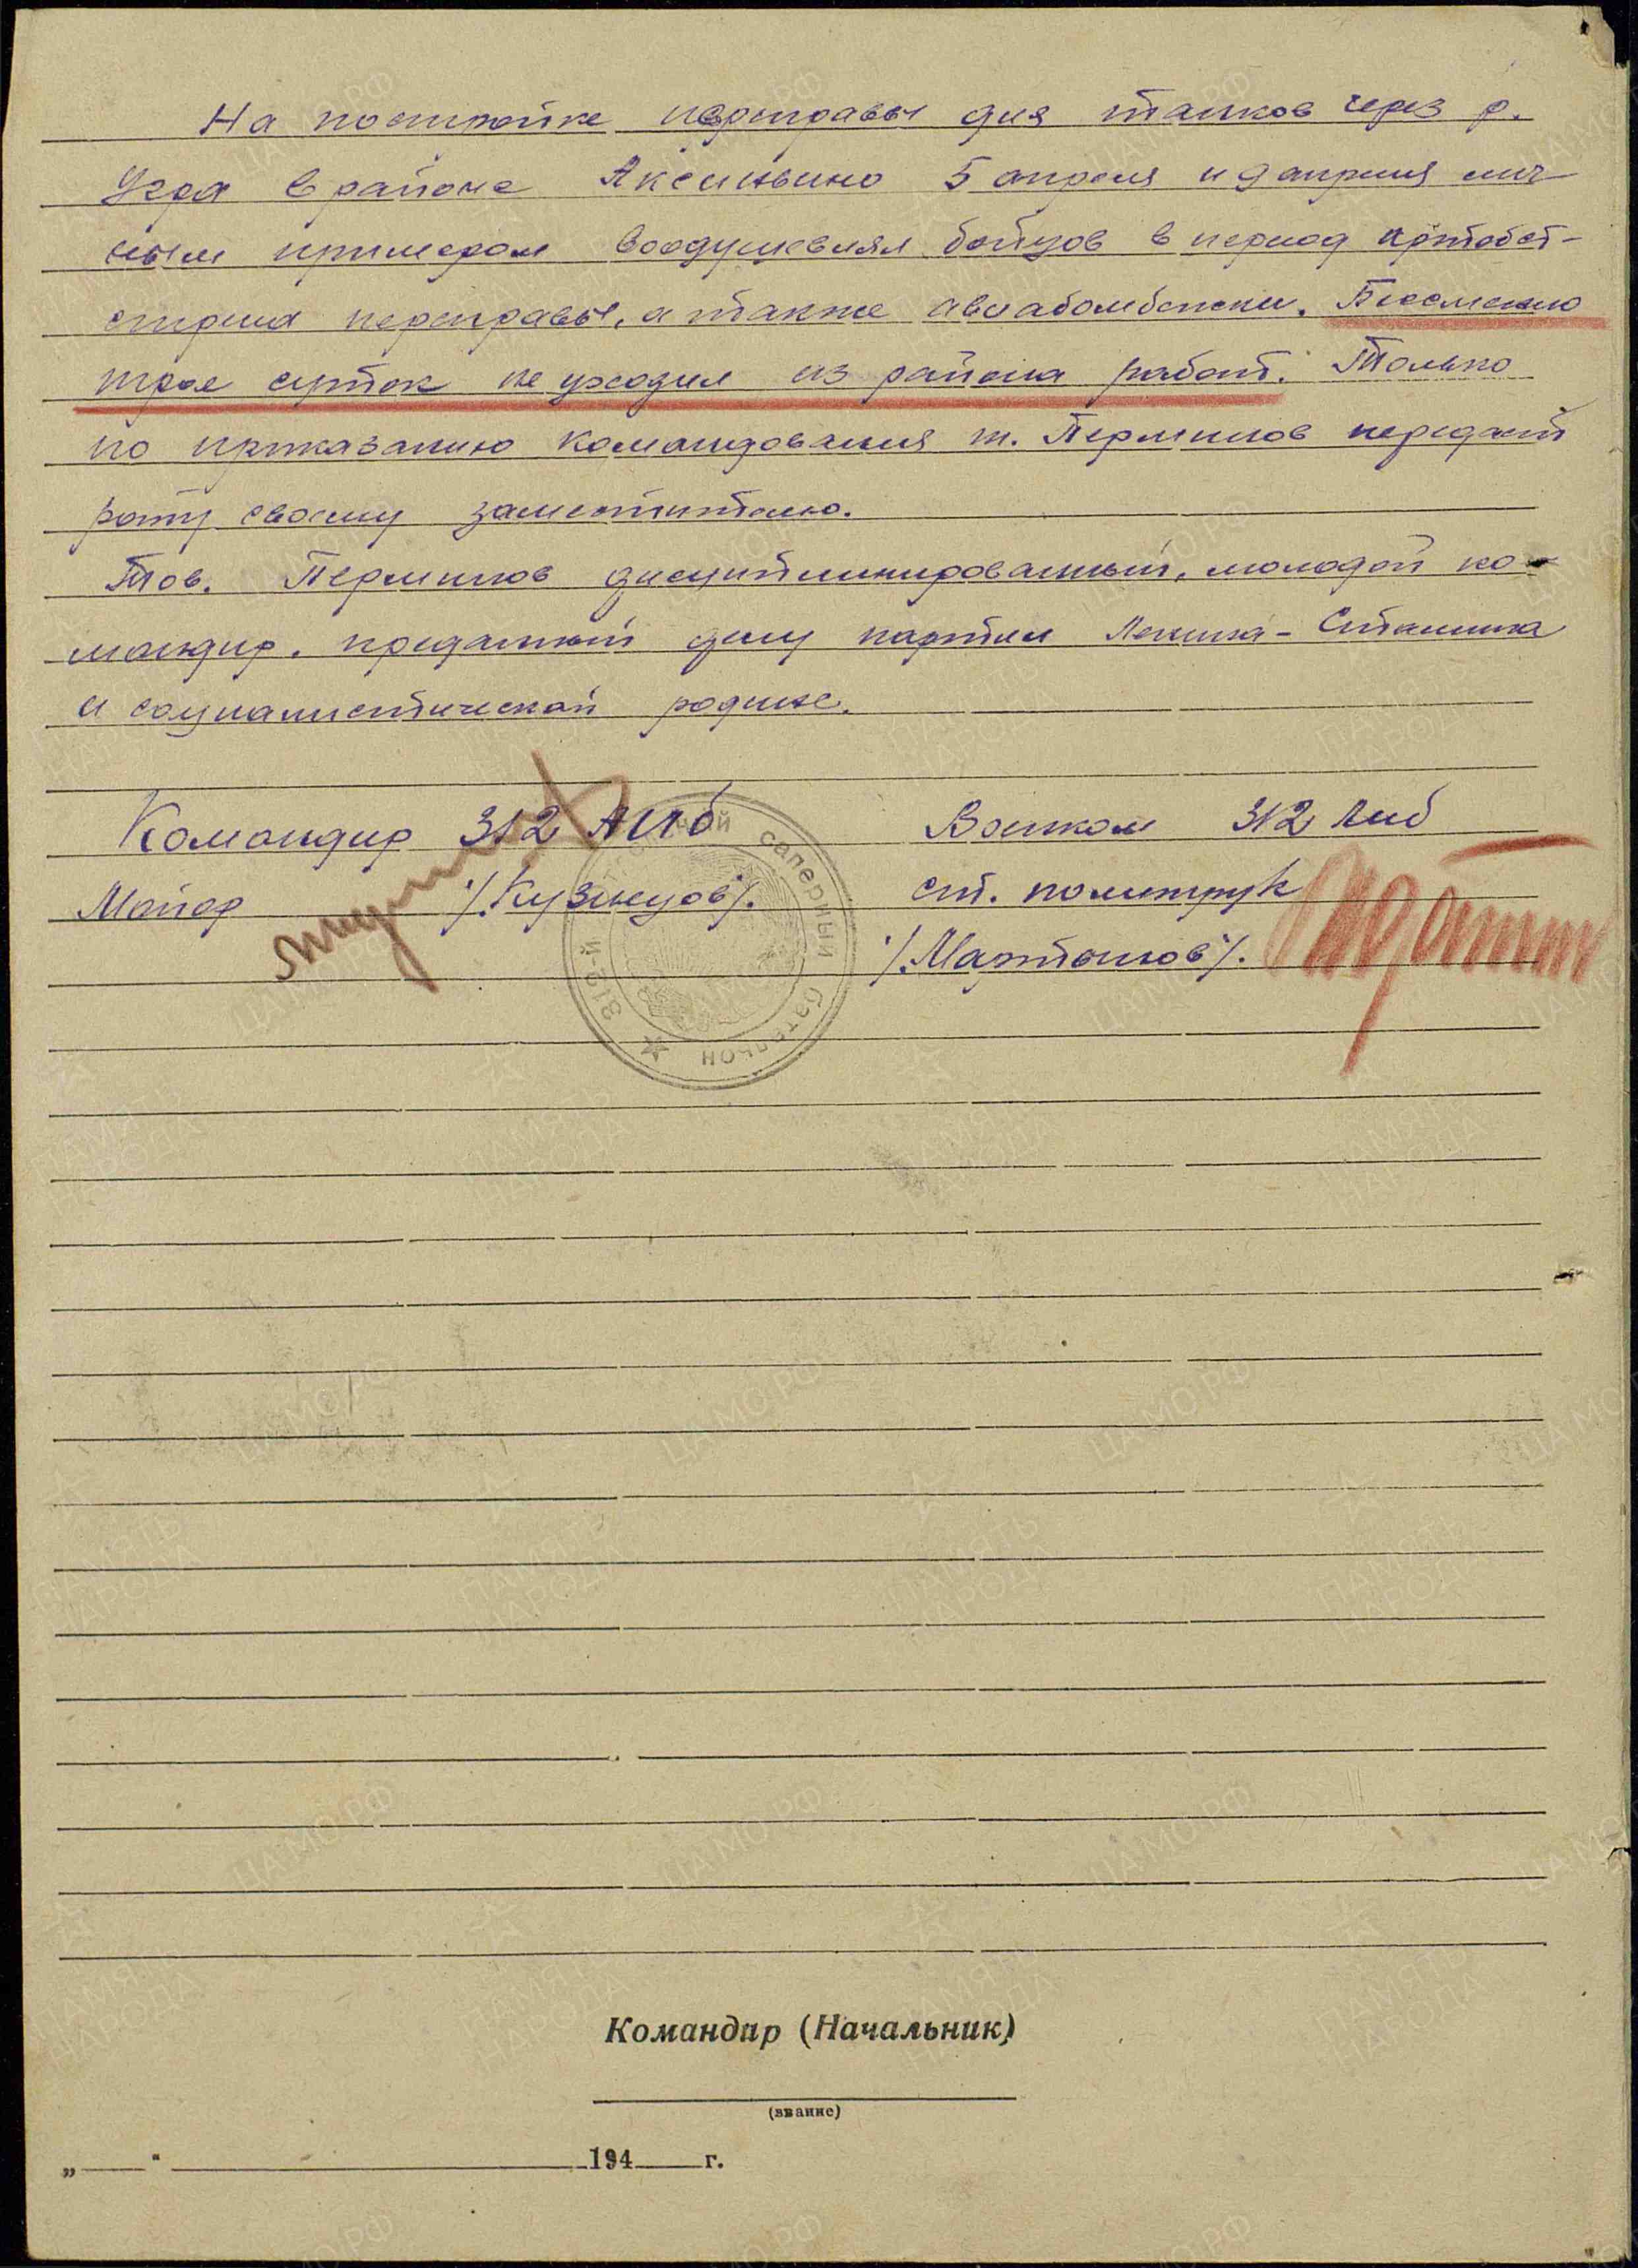 На постройке переправы для танков через р.
Угра в районе Аксиньино 5 апреля и 9 апреля лич-
ным примером воодушевлял бойцов в период артобст-
стрела переправы, а также авиабомбежки. Бессменно
трое суток не уходил из района работ. Только
по приказанию командования т. Перминов передает
роту своему заместителю.
Тов. Перминов дисциплинированный, молодой ко-
мандир, преданный делу партии Ленина-Сталина
и социалистической родине.
Командир 312 АИБ
Военком 312 Аиб
Майор /Кузнецов/.
ст. политрук
/Мартынов/.
312-й саперный батальон
Командир (Начальник)
(звание)
„ “ 194 г.
ЦАМО.РФ
ПАМЯТЬ НАРОДА